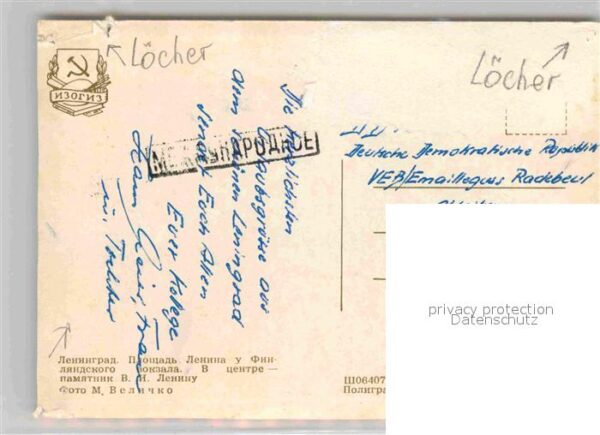 Löcher
Löcher
ИЗОГИЗ
МЕЖДУНАРОДНОЕ
Die herzlichsten
Urlaubsgrüsse aus
dem schönen Leningrad
sendet Euch Allen
Euer Kollege
Frau
u. Tochter
Deutsche Demokratische Republik
VEB/Emailleguss Radebeul
privacy protection
Datenschutz
Ленинград. Площадь Ленина у Фин-
ляндского вокзала. В центре —
памятник В. И. Ленину
Фото М. Величко
Ш06407
Полиграф